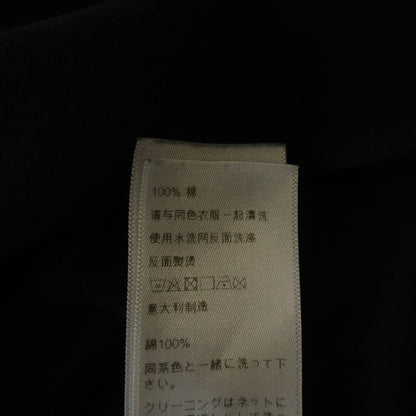 100% 棉
请与同色衣服一起清洗
使用水洗网反面洗涤
反面熨烫
意大利制造
綿100%
同系色と一緒に洗って下
さい。
クリーニングはネットに